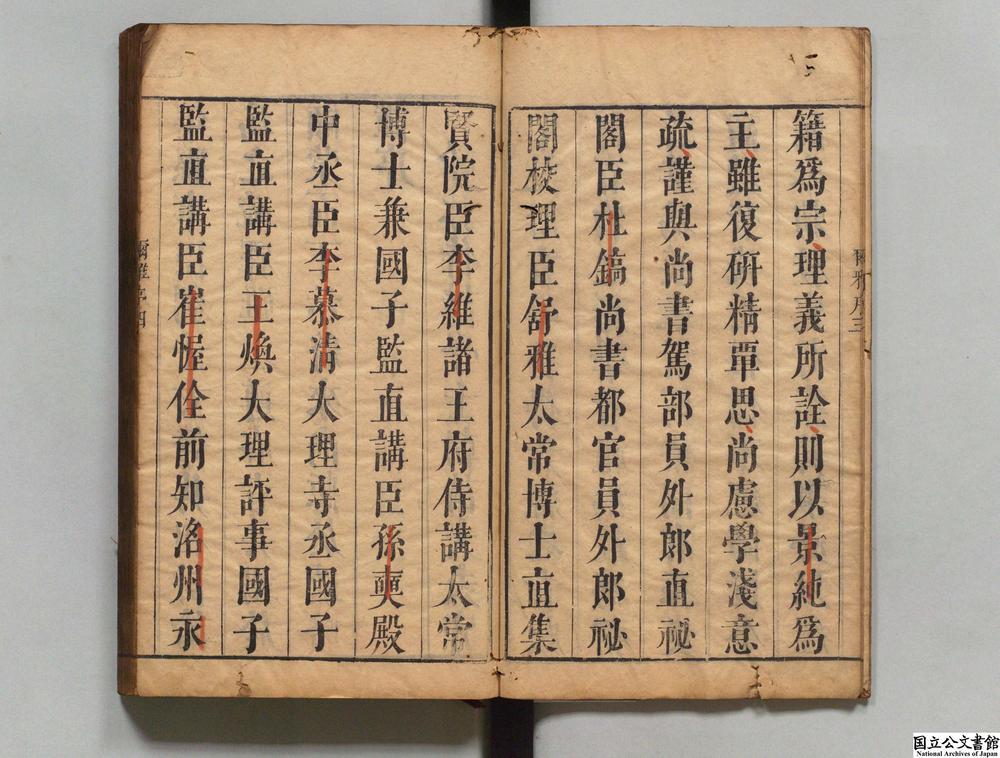 籍爲宗理義所詮則以景純爲
主雖復硏精覃思尚慮學淺意
疏謹與尚書駕部員外郎直祕
閣臣杜鎬尚書都官員外郎祕
閣校理臣舒雅太常博士直集
賢院臣李維諸王府侍講太常
博士兼國子監直講臣孫奭殿
中丞臣李慕清大理寺丞國子
監直講臣王煥大理評事國子
監直講臣崔偓佺前知洺州永
爾雅序三
爾雅序四
国立公文書館
National Archives of Japan